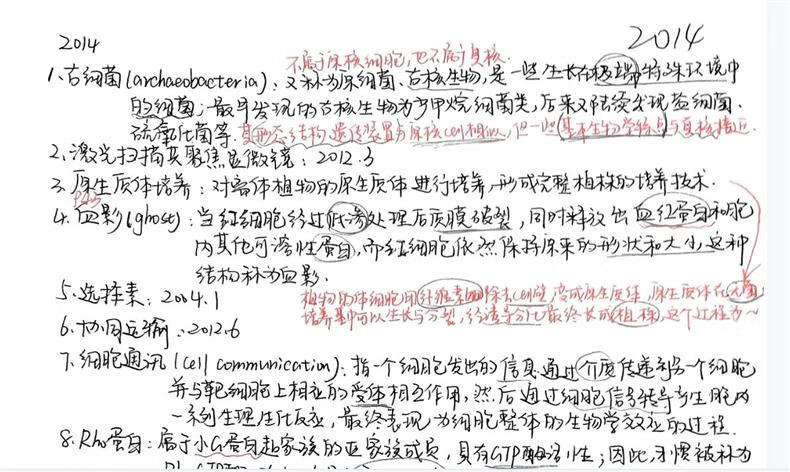 2014
2014
不属于原核细胞，也不属于真核.
1、古细菌(archaeobacteria)：又称为原细菌、古核生物，是一些生长在极端特殊环境中
的细菌；最早发现的古核生物为产甲烷细菌类，后来又陆续发现盐细菌、
硫氧化菌等.其形态结构、遗传装置与原核cell相似，但一些基本生物学特点与真核接近.
2、激光扫描共聚焦显微镜：2012.3
3、原生质体培养：对离体植物的原生质体进行培养，形成完整植株的培养技术.
4、血影(ghost)：当红细胞经过低渗处理后质膜破裂，同时释放出血红蛋白和胞
内其他可溶性蛋白，而红细胞依然保持原来的形状和大小，这种
结构称为血影.
5、选择素：2004.1
植物的体细胞用纤维素酶除去cell壁，变成原生质体，原生质体在无菌
6、协同运输：2012.6
培养基中可以生长与分裂，经诱导分化最终长成植株，这个过程为~
7、细胞通讯(cell communication)：指一个细胞发出的信息通过介质传递到另一个细胞
并与靶细胞上相应的受体相互作用，然后通过细胞信号转导产生胞内
一系列生理生化反应，最终表现为细胞整体的生物学效应的过程.
8、Rho蛋白：属于小G蛋白超家族的亚家族成员，具有GTP酶活性；因此习惯被称为